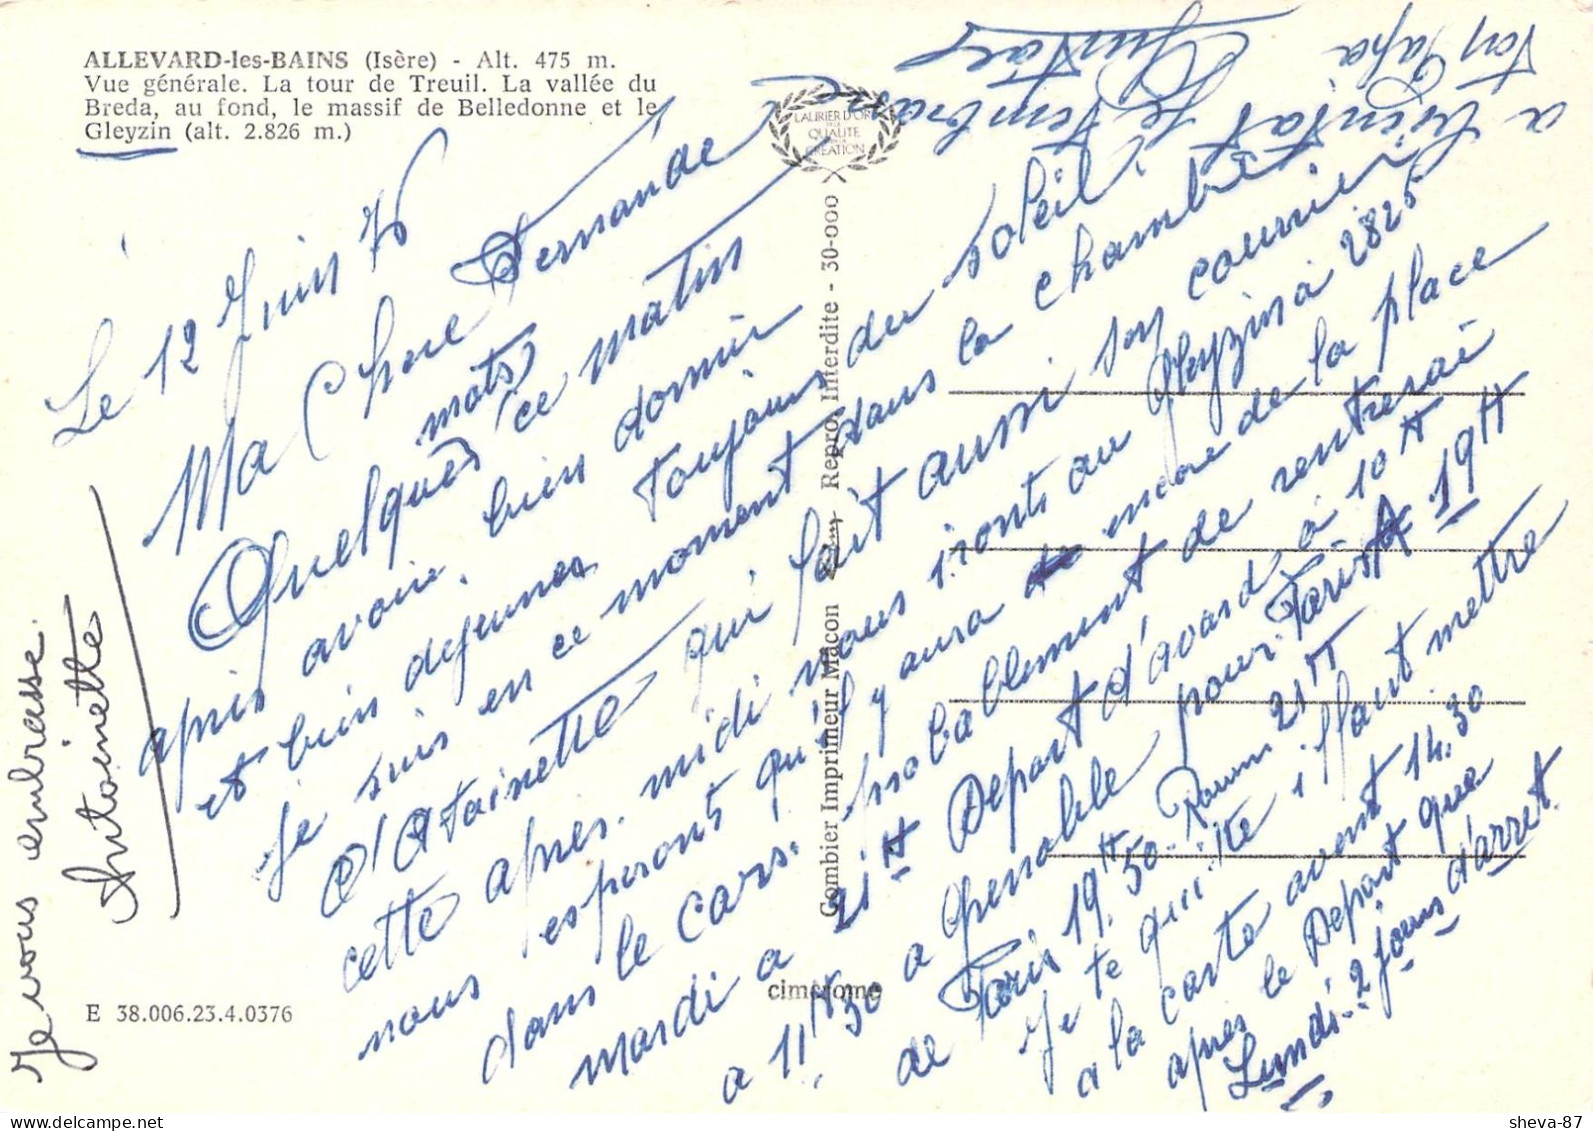 ALLEVARD-les-BAINS (Isère) - Alt. 475 m.
Vue générale. La tour de Treuil. La vallée du
Breda, au fond, le massif de Belledonne et le
Gleyzin (alt. 2.826 m.)
LAURIER D'OR
DE LA
QUALITÉ
CRÉATION
Le 12 Juin 76
Ma Chere Fernande
Quelques mots, ce matin
après avoir bien dormir
et bien dejeuner toujours du soleil
je suis en ce moment dans la chambre
d'Antoinette qui fait aussi son courrier
cette apres-midi nous iront au Gleyzin a 2825
nous esperont qu'il y aura encore de la place
dans le cars. probablement de rentrerai
mardi a 21 H Depart d'avard à 10 H
a 11 H 30 a Grenoble pour Paris A 19 H
de Paris 19 H 50. 21 H
Je te quitte il faut mettre
a la carte avant 14.30
apres le Depart que
Lundi. 2 jours d'arret.
Ton Papa
Gustave
Je vous embrasse.
Antoinette
Combier Imprimeur Mâcon
Repro. Interdite - 30-000
cimcrome
E 38.006.23.4.0376
sheva-87